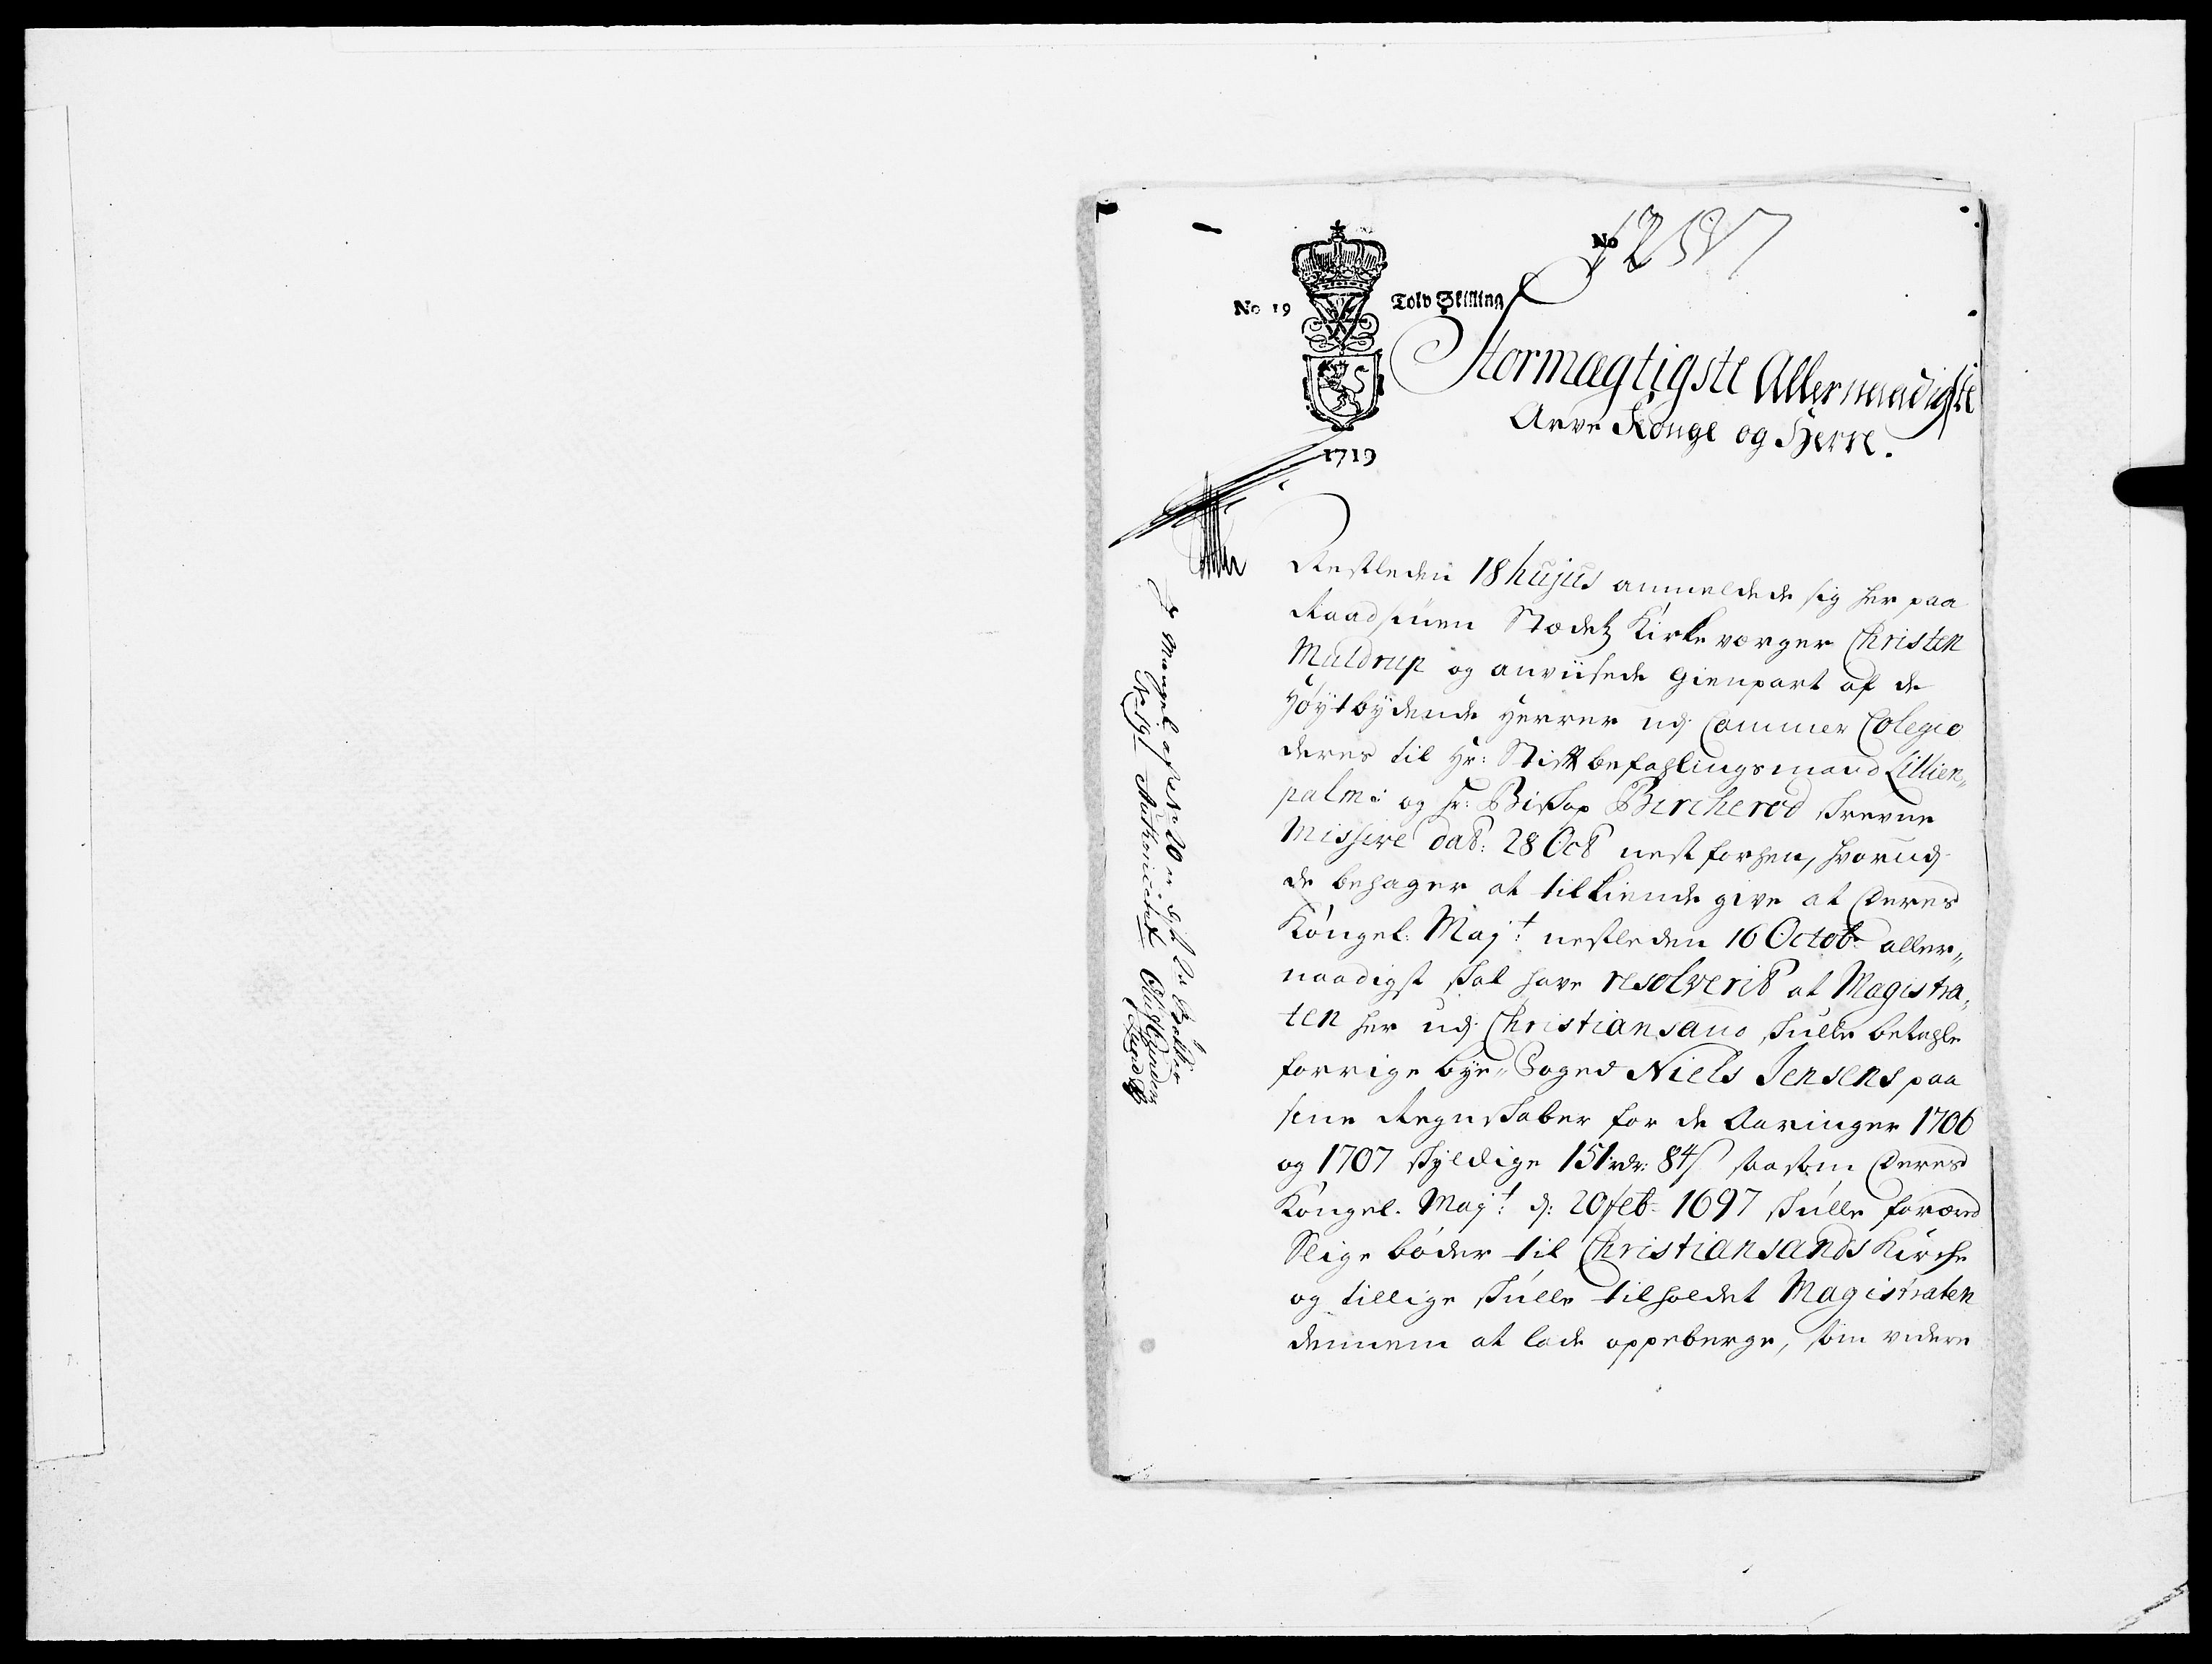 No 1287
No 19 Tolv Skilling
Stormægtigste Allernaadigste
Arve Konge og Herre.
1719
Nestleden 18 hujus anmeldede sig her paa
Raadstuen Stædetz Kirke værger Christen
Muldrup og anviisede gienpart af de
Høytbydende Herrer udj Cammer Colegio
deres til Hr: Stiftbefahlingsmand Lillien„
palm: og Hr: Biskop Bircherod skrevne
Missive dat: 28 Oct nest forhen, hvorudj
de behager at tilkiende give at Deres
Kongel: Maj:t nestleden 16 Octob: aller„
naadigst skal have resolverit at Magistra„
ten her udj Christiansand skulle betahle
forrige bye„Foged Niels Jensens paa
sine Regnskaber for de Aaringer 1706
og 1707 skyldige 151 rdr: 84 s saasom Deres
Kongel. Maj:t d: 20 feb: 1697 skulle foræred
Slige bøder til Christiansands Kirche
og tillige skulle tilholdet Magistraten
dennem at lade oppeberge, som videre
J Mangel af No 20 er
No 19 Authoriceret